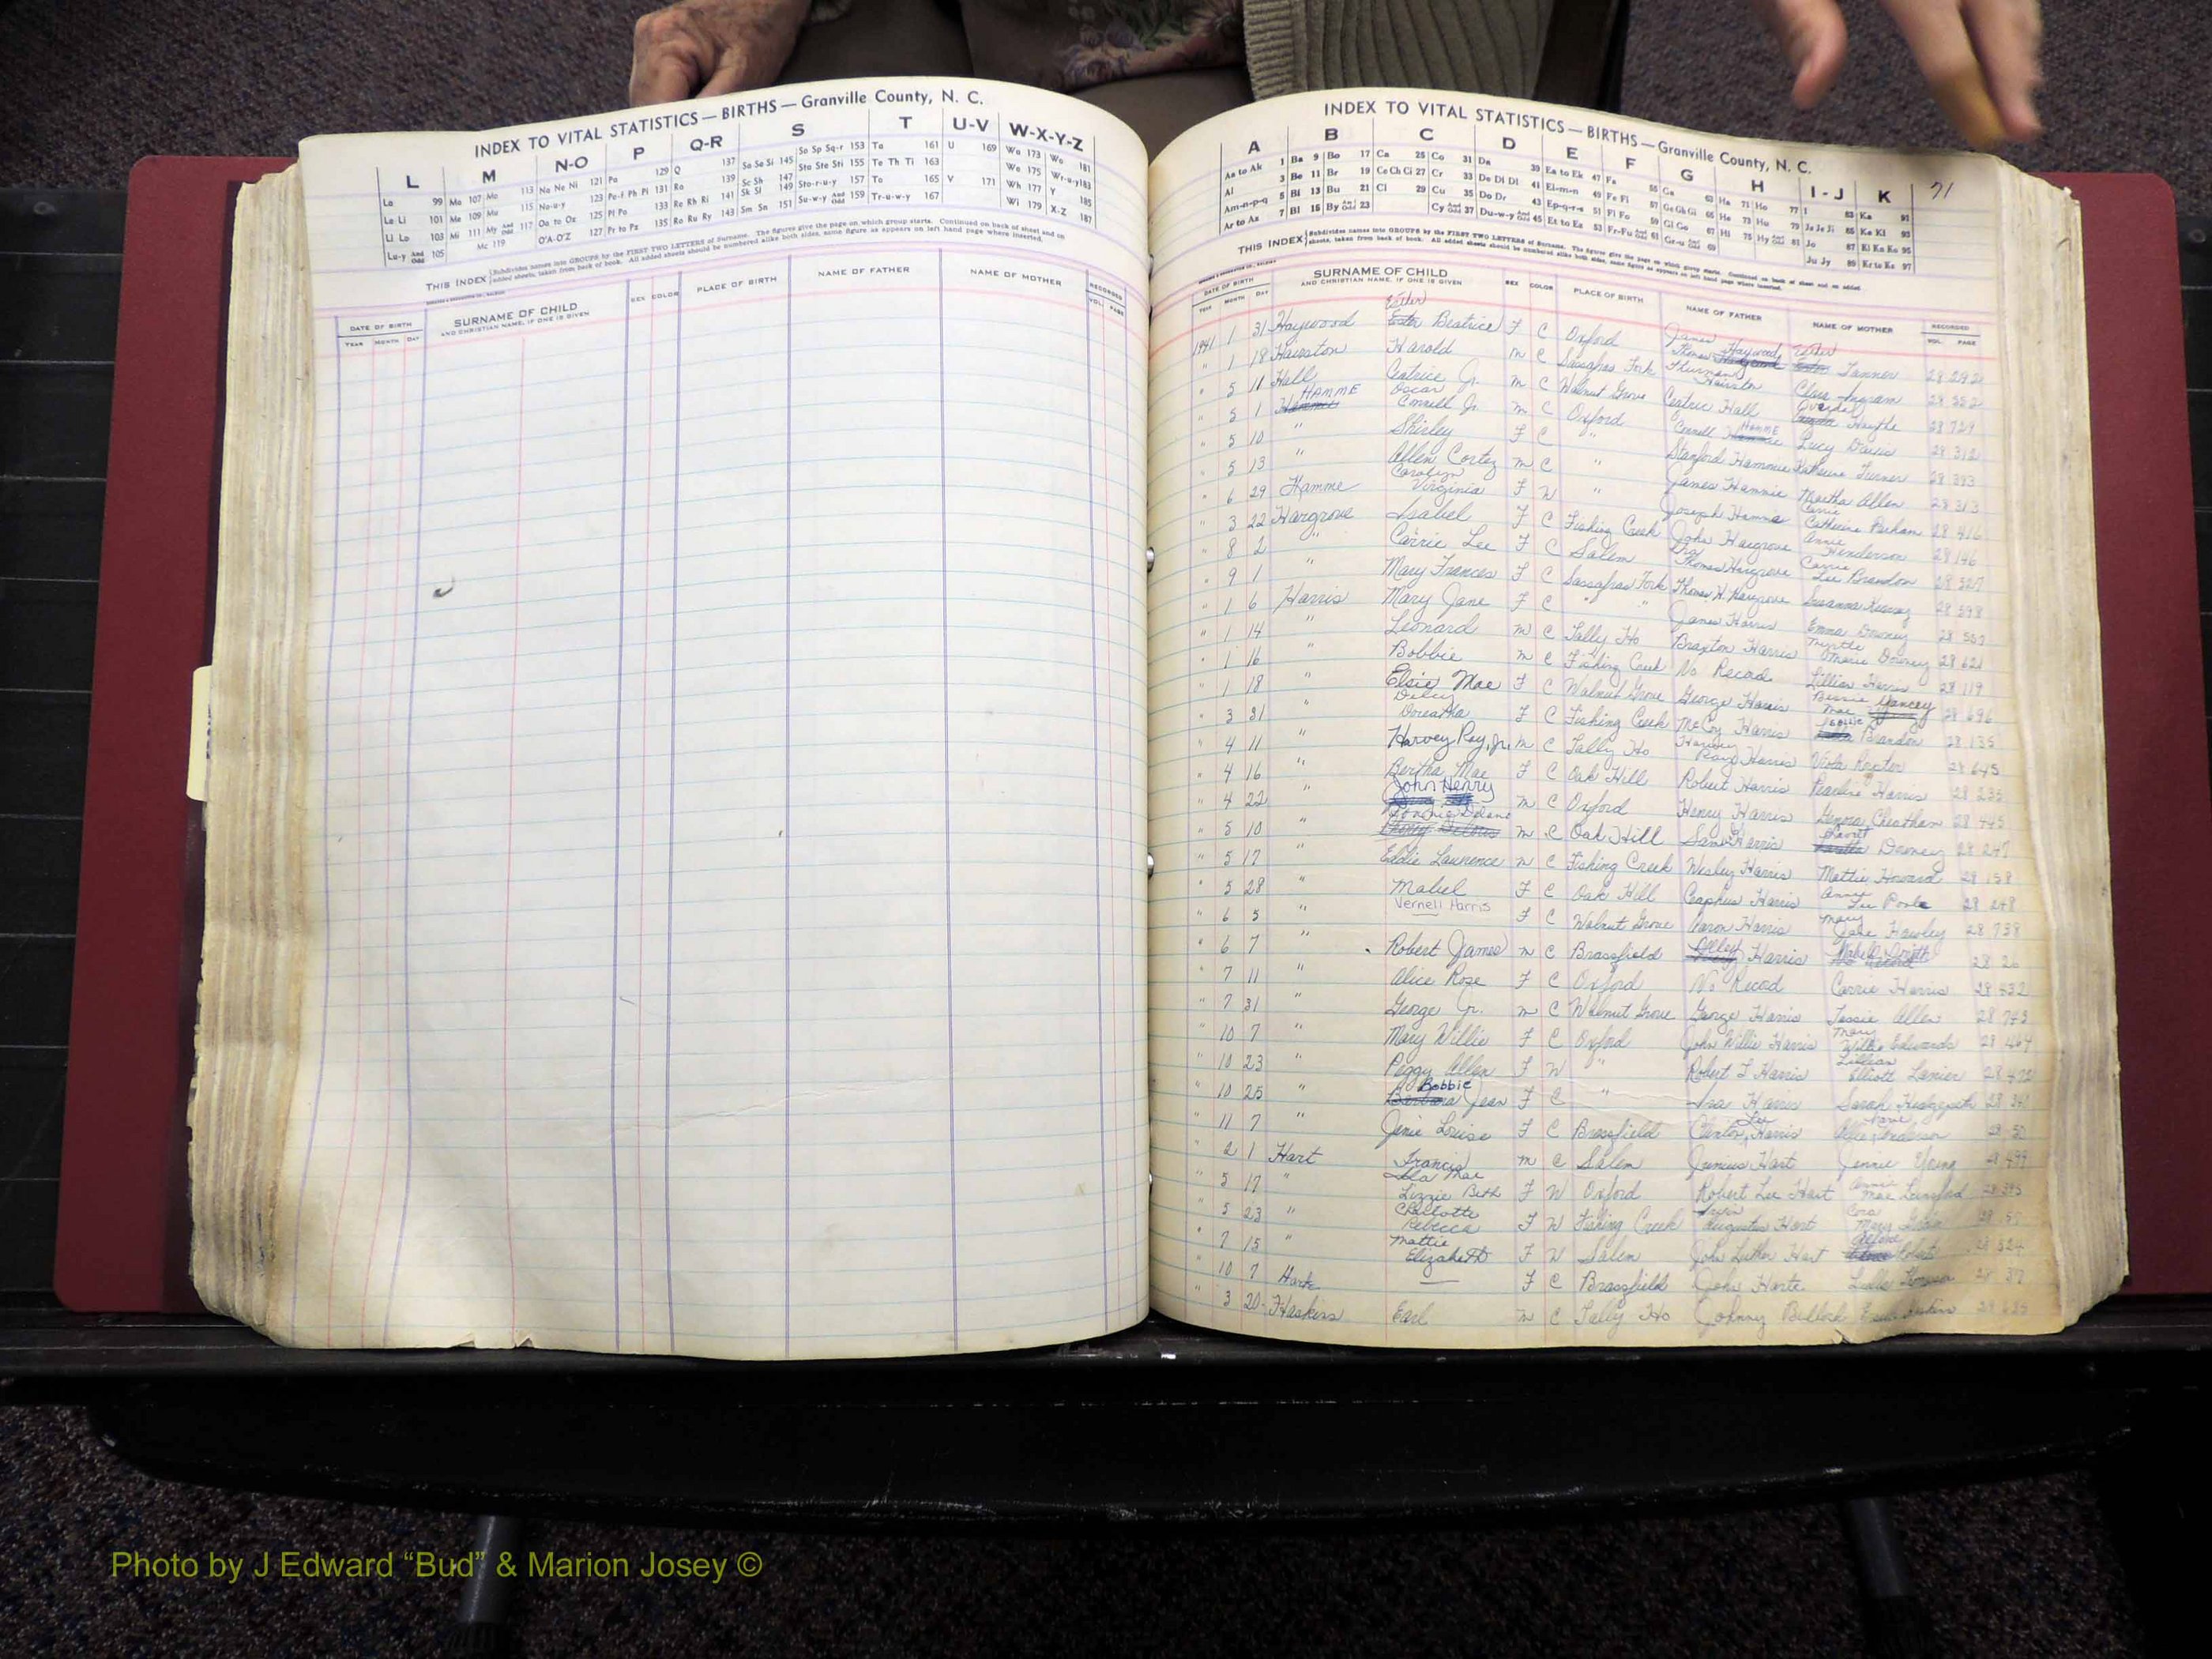 INDEX TO VITAL STATISTICS — BIRTHS — Granville County, N. C.
L M N-O P Q-R S T U-V W-X-Y-Z
La 99 Ma 107 Mo 113 Na Ne Ni 121 Pa 129 Q 137 Sa Se Si 145 So Sp Sq-r 153 Ta 161 U 169 Wa 173 Wo 181
Le Li 101 Me 109 Mu 115 No-u-y 123 Pe-f Ph Pi 131 Ra 139 Sc Sh 147 Sta Ste Sti 155 Te Th Ti 163 We 175 Wr-u-y 183
Li Lo 103 Mi 111 My And Odd 117 Oa to Oz 125 Pl Po 133 Re Rh Ri 141 Sk Sl 149 Sto-r-u-y 157 To 165 V 171 Wh 177 Y 185
Lu-y And Odd 105 Mc 119 O'A-O'Z 127 Pr to Pz 135 Ro Ru Ry 143 Sm Sn 151 Su-w-y And Odd 159 Tr-u-w-y 167 Wi 179 X-Z 187
THIS INDEX Subdivides names into GROUPS by the FIRST TWO LETTERS of Surname. The figures give the page on which group starts. Continued on back of sheet and on
added sheets, taken from back of book. All added sheets should be numbered alike both sides, same figure as appears on left hand page where inserted.
DATE OF BIRTH SURNAME OF CHILD SEX COLOR PLACE OF BIRTH NAME OF FATHER NAME OF MOTHER RECORDED
YEAR MONTH DAY AND CHRISTIAN NAME, IF ONE IS GIVEN VOL. PAGE
INDEX TO VITAL STATISTICS — BIRTHS — Granville County, N. C.
71
A B C D E F G H I-J K
Aa to Ak 1 Ba 9 Bo 17 Ca 25 Co 31 Da 39 Ea to Ek 47 Fa 55 Ga 63 Ha 71 Ho 77 I 83 Ka 91
Al 3 Be 11 Br 19 Ce Ch Ci 27 Cr 33 De Di Dl 41 El-m-n 49 Fe Fi 57 Ge Gh Gi 65 He 73 Hu 79 Ja Je Ji 85 Ke Kl 93
Am-n-p-q 5 Bi 13 Bu 21 Cl 29 Cu 35 Do Dr 43 Ep-q-r-s 51 Fl Fo 59 Gl Go 67 Hi 75 Hy And Odd 81 Jo 87 Kl Kn Ko 95
Ar to Az 7 Bl 15 By And Odd 23 Cy And Odd 37 Du-w-y And Odd 45 Et to Ez 53 Fr-Fu And Odd 61 Gr-u And Odd 69 Ju Jy 89 Kr to Kz 97
THIS INDEX Subdivides names into GROUPS by the FIRST TWO LETTERS of Surname. The figures give the page on which group starts. Continued on back of sheet and on added
sheets, taken from back of book. All added sheets should be numbered alike both sides, same figure as appears on left hand page where inserted.
DATE OF BIRTH SURNAME OF CHILD SEX COLOR PLACE OF BIRTH NAME OF FATHER NAME OF MOTHER RECORDED
YEAR MONTH DAY AND CHRISTIAN NAME, IF ONE IS GIVEN VOL. PAGE
1941 1 31 Haywood Esther Beatrice F C Oxford James Haywood Esther Tanner 28 292
" 1 18 Hairston Harold m C Sassafras Fork Thurman Hairston Clara Ingram 28 552
" 5 11 Hall Ceatrice Jr. m C Walnut Grove Ceatrice Hall Haythe 28 729
" 5 1 HAMME Oscar Connell Jr m C Oxford Connell HAMME Lucy Davis 28 312
" 5 10 " Shirley F C " Stanford Hammie Katherine Turner 28 393
" 5 13 " Allen Cortez m C " James Hammie Martha Allen 28 313
" 6 29 Hamme Carolyn Virginia F W " Joseph Hamme Carrie Catherine Parham 28 416
" 3 22 Hargrove Isabel F C Fishing Creek John Hargrove Annie Henderson 28 146
" 8 2 " Carrie Lee F C Salem Ira Thomas Hargrove Carrie Lee Brandon 28 527
" 9 1 " Mary Frances F C Sassafras Fork Thomas H. Hargrove Susanna Kearney 28 598
" 1 6 Harris Mary Jane F C " " James Harris Emma Downey 28 557
" 1 14 " Leonard m C Tally Ho Braxton Harris Myrtle Marie Downey 28 621
" 1 16 " Bobbie m C Fishing Creek No Record Lillian Harris 28 119
" 1 18 " Elsie Mae F C Walnut Grove George Harris Bessie Mae Yancey 28 696
" 3 31 " Dilcy Doreatha F C Fishing Creek McCoy Harris Brandon 28 135
" 4 11 " Harvey Ray, Jr. m C Tally Ho Harvey Ray Harris Viola Royster 28 645
" 4 16 " Bertha Mae F C Oak Hill Robert Harris Pearline Harris 28 235
" 4 22 " John Henry m C Oxford Henry Harris Genora Cheatham 28 445
" 5 10 " m C Oak Hill Sam Harris Downey 28 247
" 5 17 " Eddie Laurence m C Fishing Creek Wesley Harris Mattie Howard 28 158
" 5 28 " Mabel F C Oak Hill Cephus Harris Annie Lee Poole 28 248
" 6 5 " Vernell Harris F C Walnut Grove Aaron Harris Mary Jane Hawley 28 738
" 6 7 " Robert James m C Brassfield Harris 28 26
" 7 11 " Alice Rose F C Oxford No Record Carrie Harris 28 432
" 7 31 " George Jr. m C Walnut Grove George Harris Jessie Allen 28 743
" 10 7 " Mary Willie F C Oxford John Willie Harris Mary Willie Edwards 28 464
" 10 23 " Peggy Allen F W " Robert L Harris Lillian Elliott Lanier 28 472
" 10 25 " Bobbie Jean F C " Isa Harris Sarah Hedgepeth 28 341
" 11 7 " Jenie Louise F C Brassfield Clinton Lee Harris 28 50
" 2 1 Hart Francis m C Salem Junious Hart Jennie Young 28 499
" 5 17 " Ila Mae Lizzie Beth F W Oxford Robert Lee Hart Annie Mae Lunsford 28 395
" 5 23 " Charlotte Rebecca F W Fishing Creek Augustus Hart Cora Mary 28
" 7 15 " Mattie Elizabeth F W Salem John Luther Hart 28 524
" 10 7 Harte — F C Brassfield John Harte 28 37
" 3 20 Haskins Earl m C Tally Ho Johnny Bullock 28 635
Photo by J Edward “Bud” & Marion Josey ©